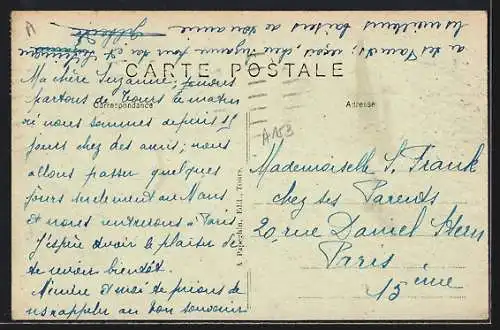 CARTE POSTALE
Correspondance
Adresse
A153
Ma chère Suzanne, 
partons de Tours ce matin
où nous sommes depuis 15
jours chez des amis; nous
allons passer quelques
jours seulement au Mans
et nous rentrerons à Paris.
J'espère avoir le plaisir de
te revoir bientôt.
et moi te prions de
rappeler au bon souvenir
de tes Parents; reçois, chère Suzanne pour toi et
les meilleurs baisers de ton amie
Mademoiselle S. Frank
chez ses Parents
20, rue Daniel Stern
Paris
15ème
Édit., Tours.